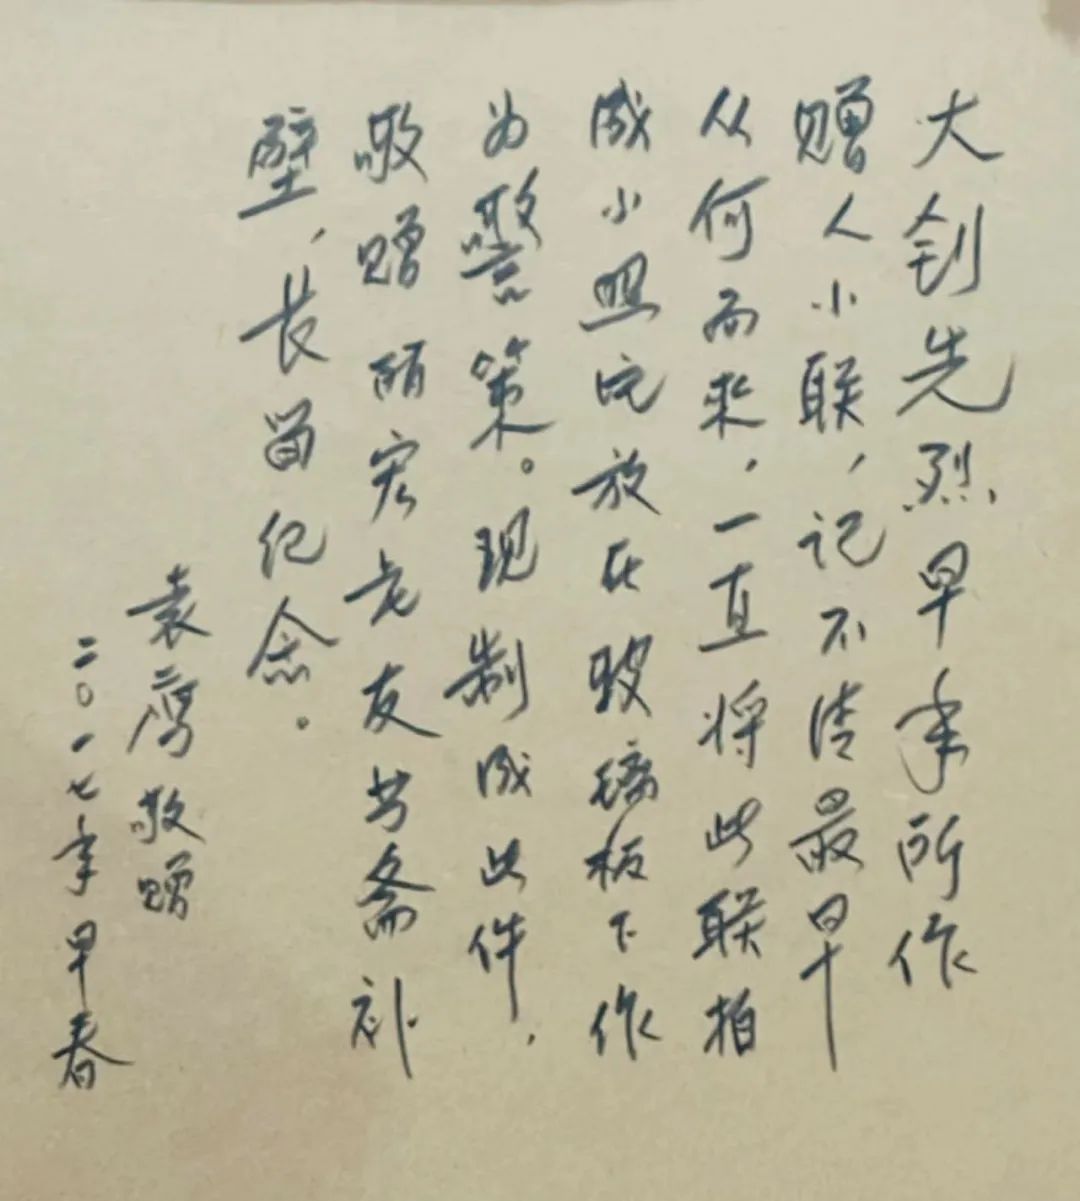 大钊先烈早年所作
赠人小联，记不清最早
从何而来，一直将此联拍
成小照完放在玻璃板下作
为警策。现制成此件，
敬赠丽宏老友书斋补
壁，长留纪念。
袁鹰敬赠
二〇一七年早春